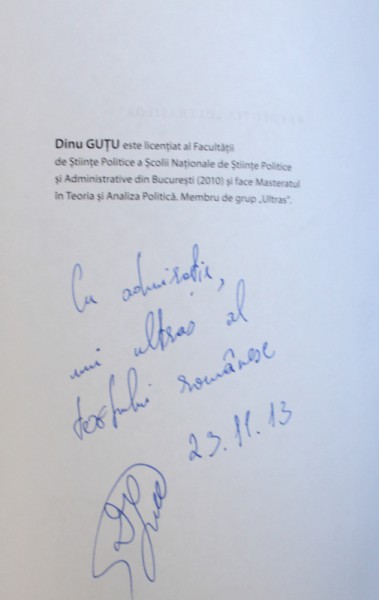 Dinu GUȚU este licențiat al Facultății
de Științe Politice a Școlii Naționale de Științe Politice
și Administrative din București (2010) și face Masteratul
în Teoria și Analiza Politică. Membru de grup „Ultras”.
Cu admirație,
unui ultras al
românesc
23.11.13